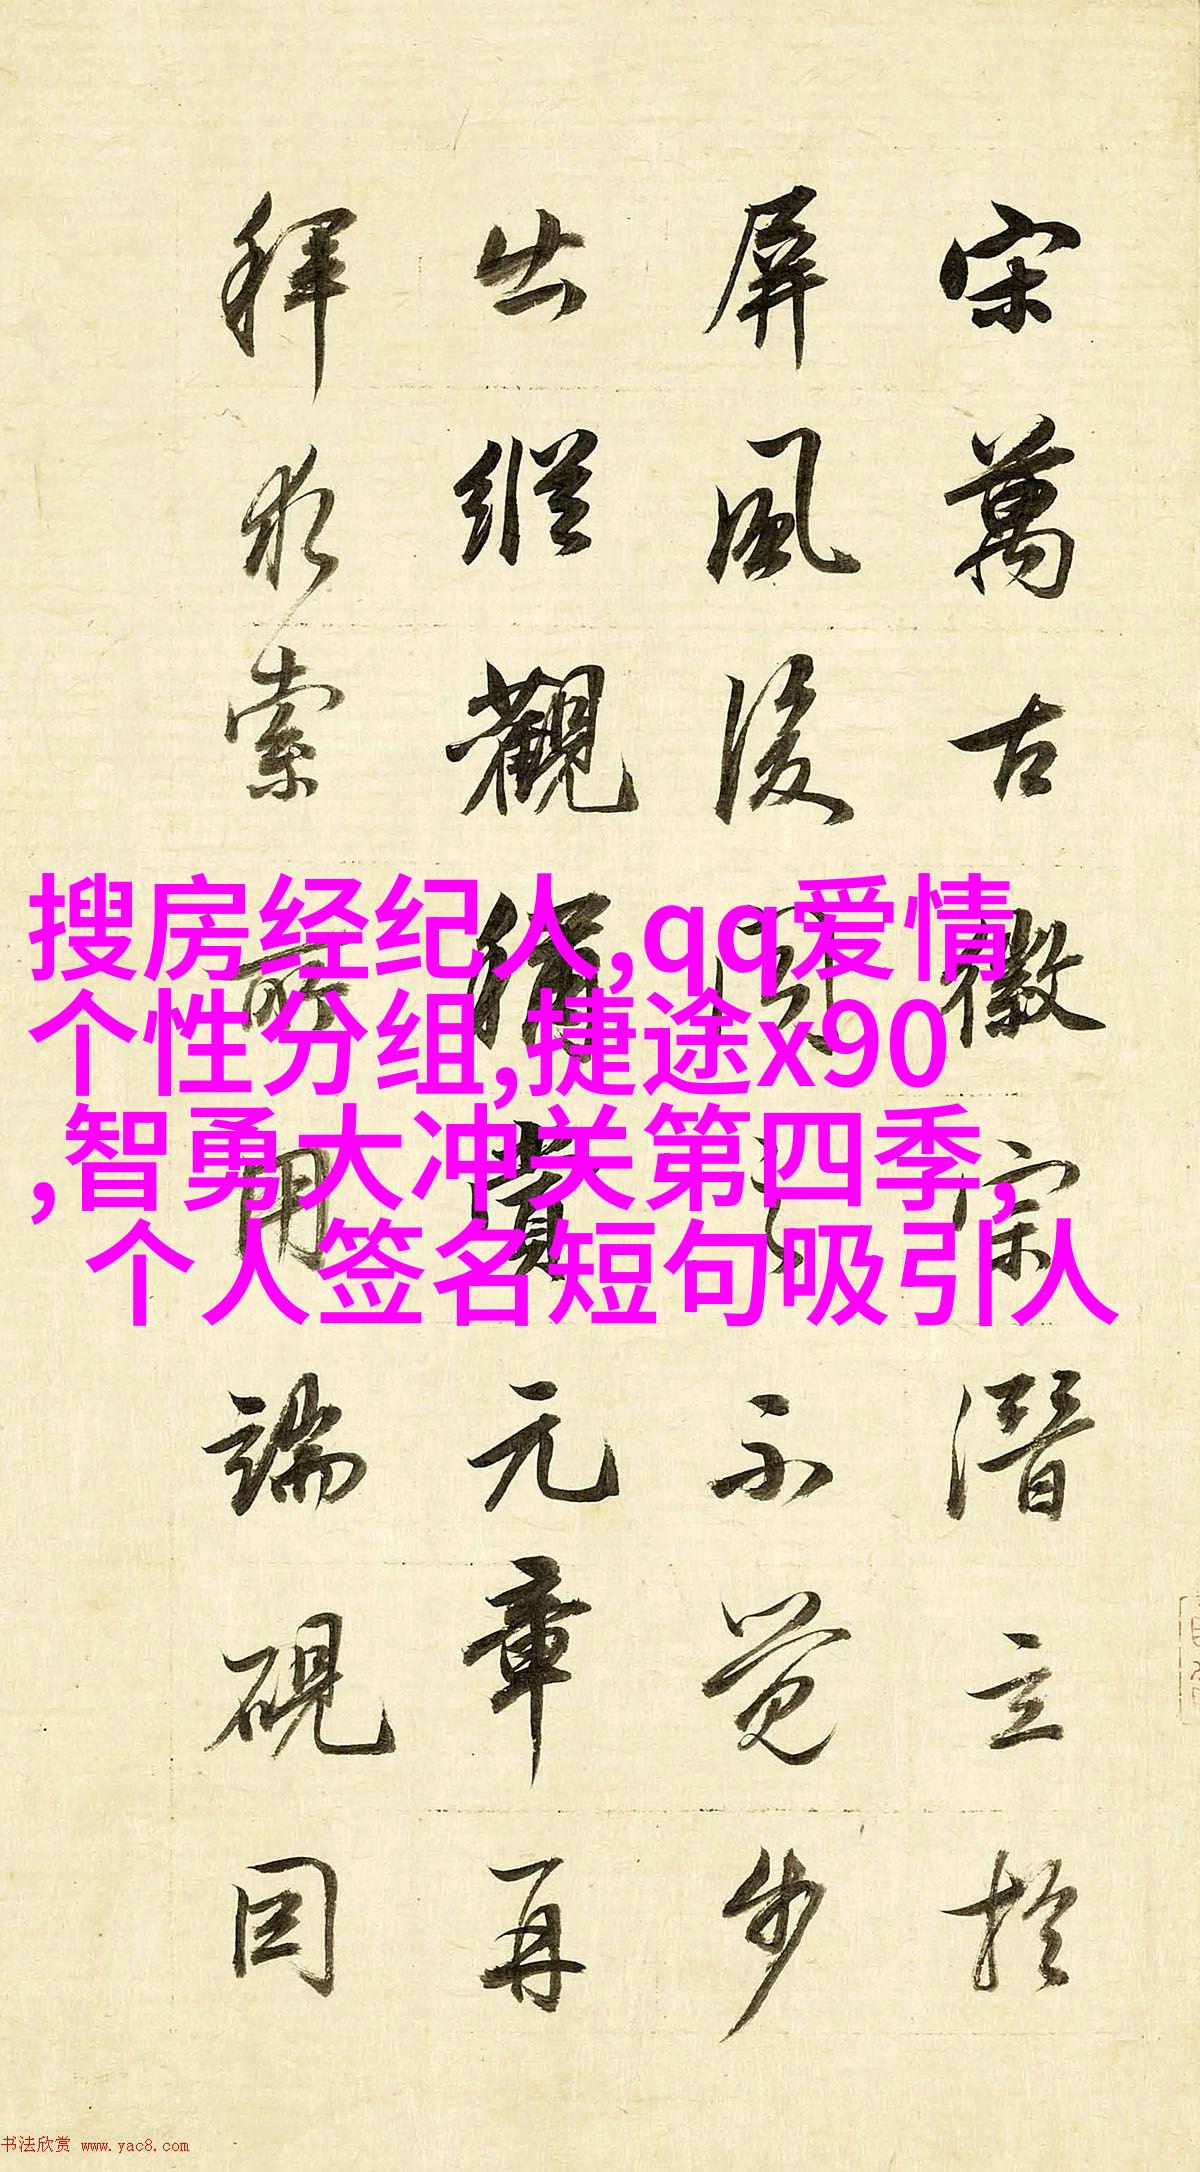 宋萬古徽宗潛立於
屏風後聞之不覺步
出縱觀稱賞元章再
拜求索所用端硯因
搜房经纪人,qq爱情
个性分组,捷途x90
,智勇大冲关第四季,
个人签名短句吸引人
书法欣赏 www.yac8.com